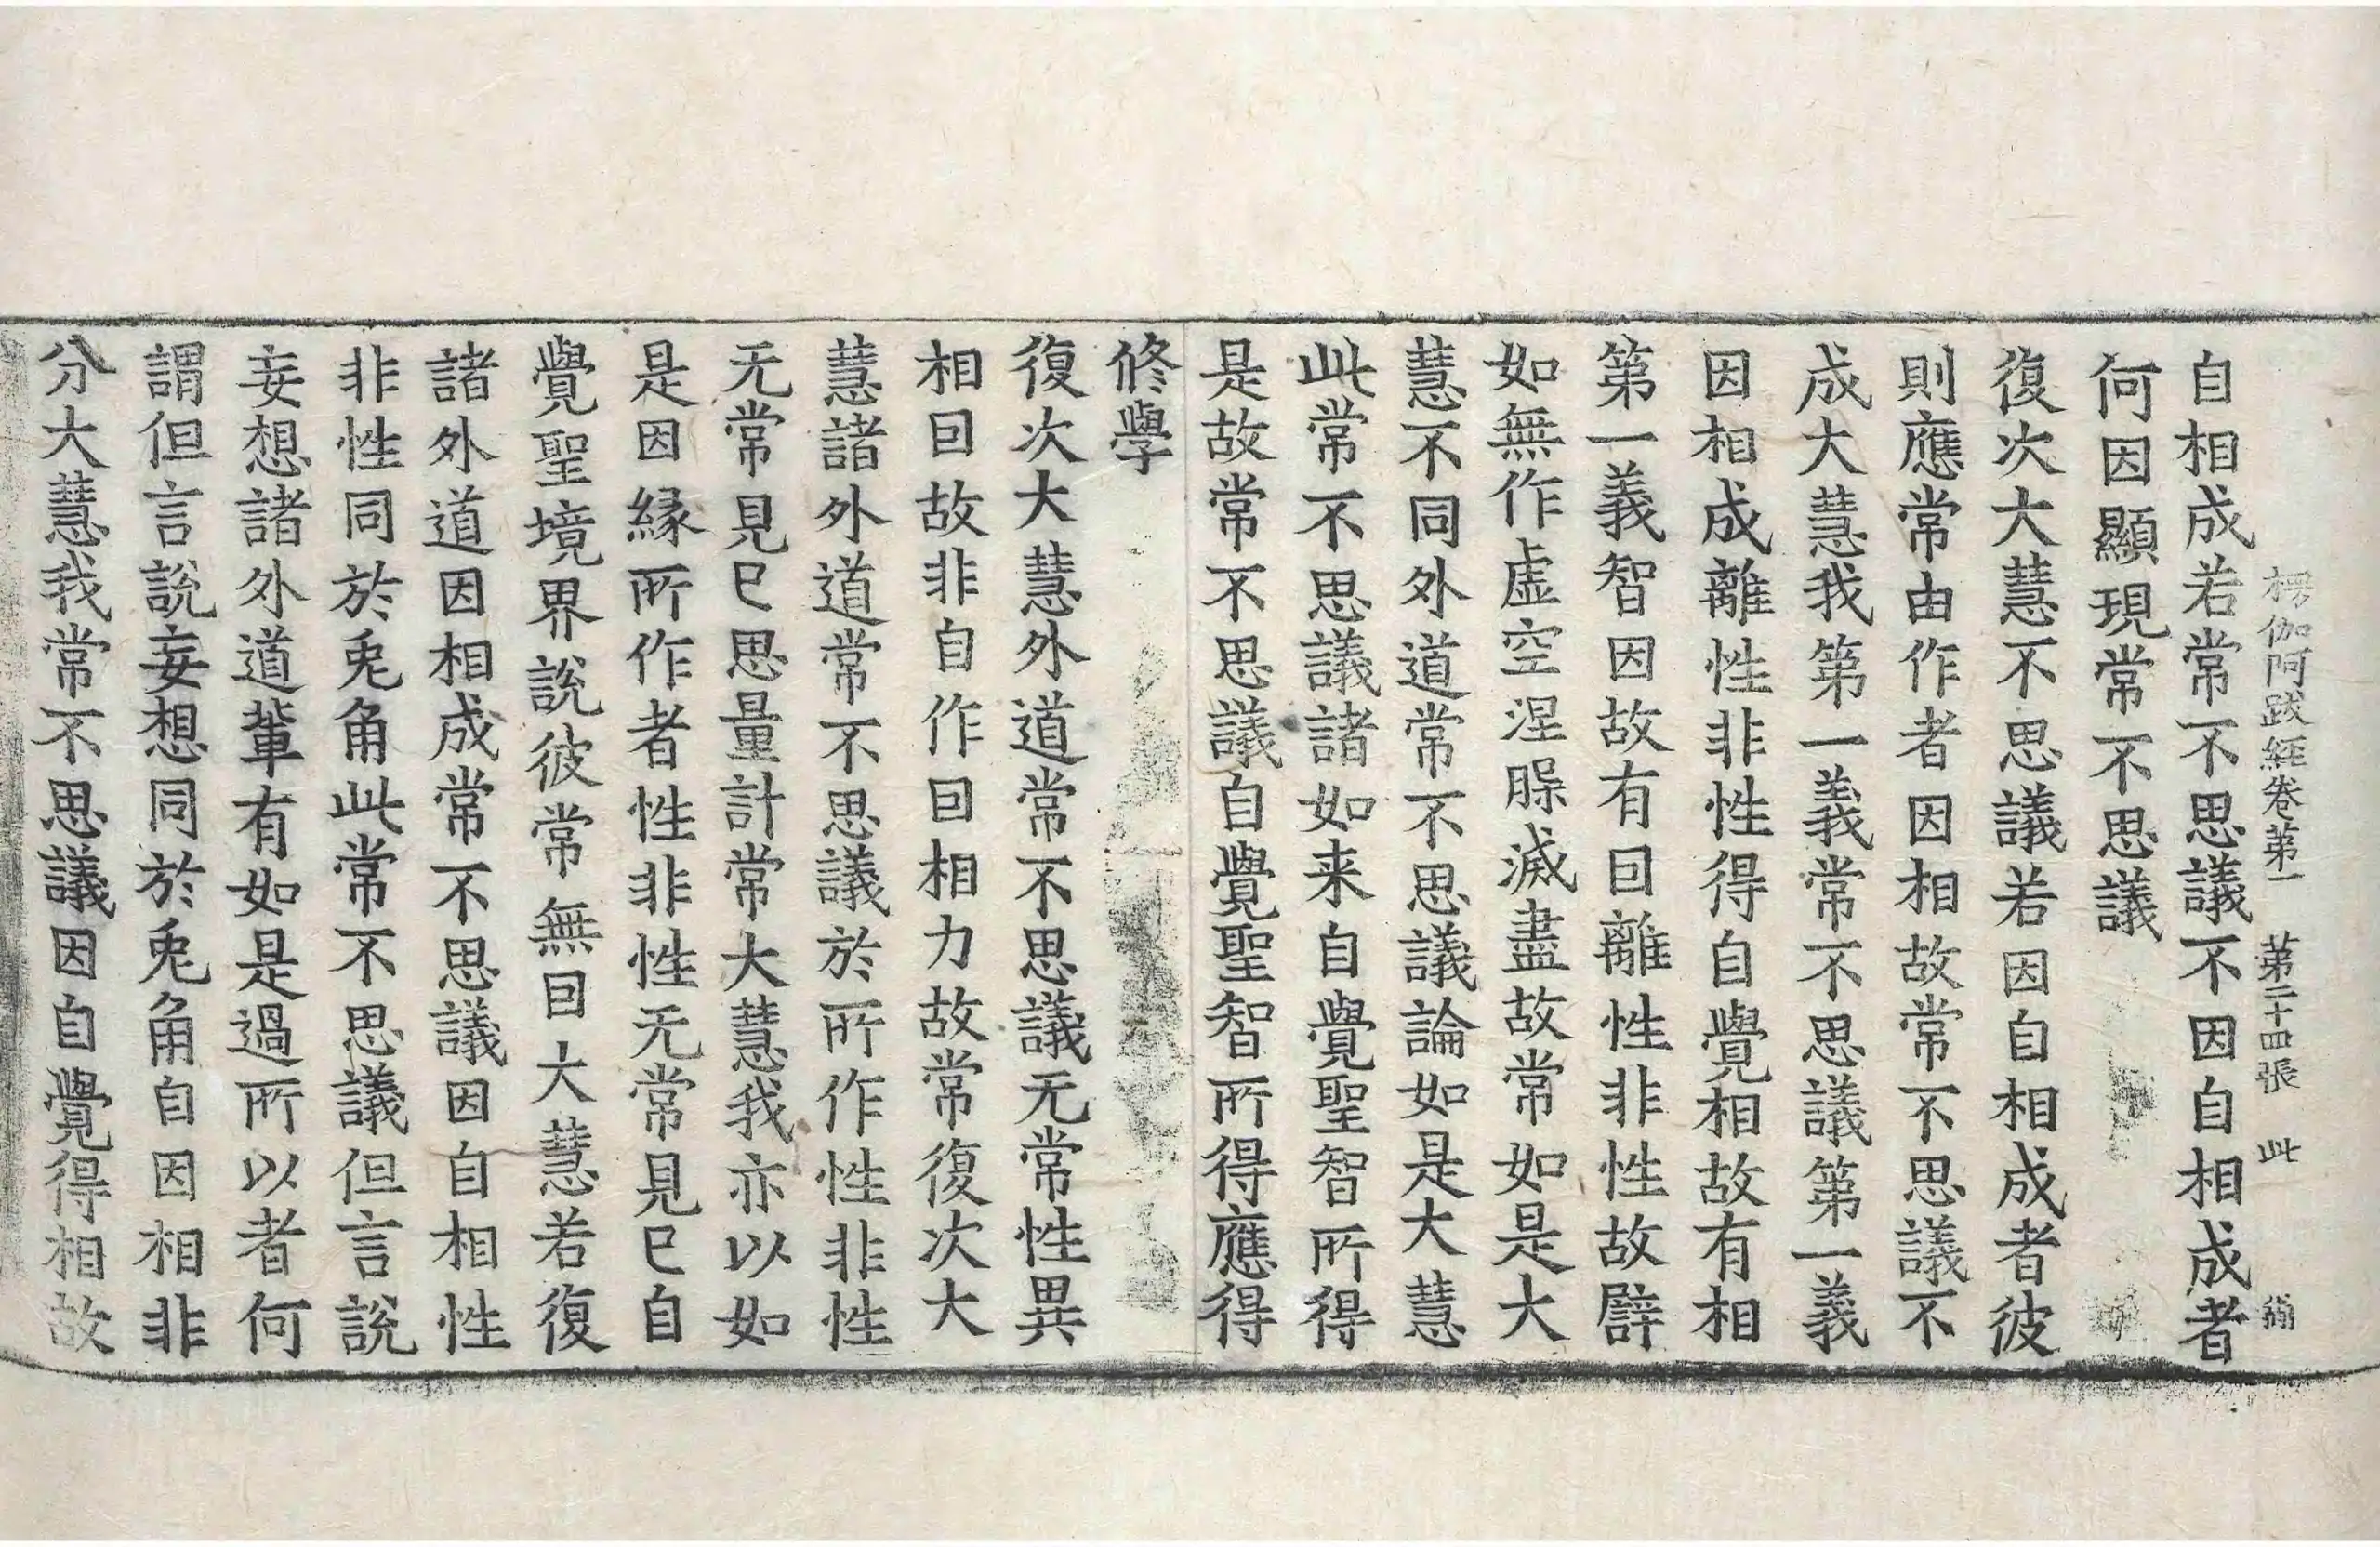 楞伽阿跋經卷第一　第二十四張　此
自相成若常不思議不因自相成者
何因顯現常不思議
復次大慧不思議若因自相成者彼
則應常由作者因相故常不思議不
成大慧我第一義常不思議第一義
因相成離性非性得自覺相故有相
第一義智因故有囙離性非性故譬
如無作虛空涅槃滅盡故常如是大
慧不同外道常不思議論如是大慧
此常不思議諸如来自覺聖智所得
是故常不思議自覺聖智所得應得
修學
復次大慧外道常不思議无常性異
相囙故非自作囙相力故常復次大
慧諸外道常不思議於所作性非性
无常見已思量計常大慧我亦以如
是因緣所作者性非性无常見已自
覺聖境界說彼常無囙大慧若復
諸外道因相成常不思議因自相性
非性同於兎角此常不思議但言說
妄想諸外道輩有如是過所以者何
謂但言說妄想同於兎角自因相非
分大慧我常不思議因自覺得相故